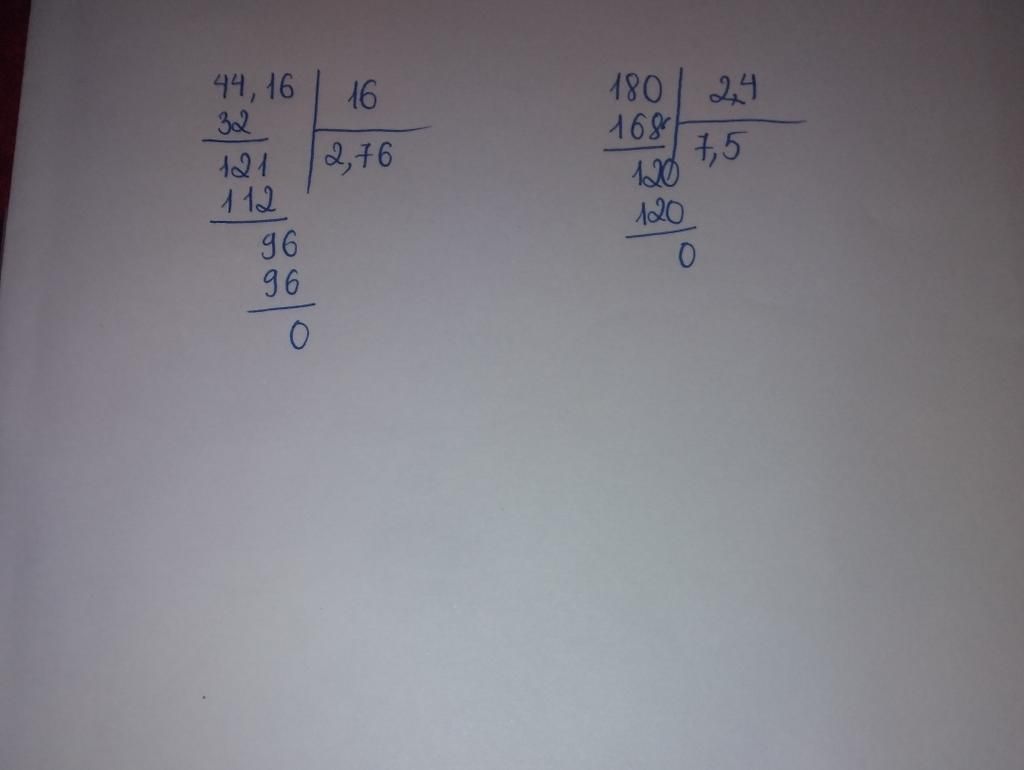 44,16 16
32
2,76
121
112
96
96
0
180 2,4
168
7,5
120
120
0